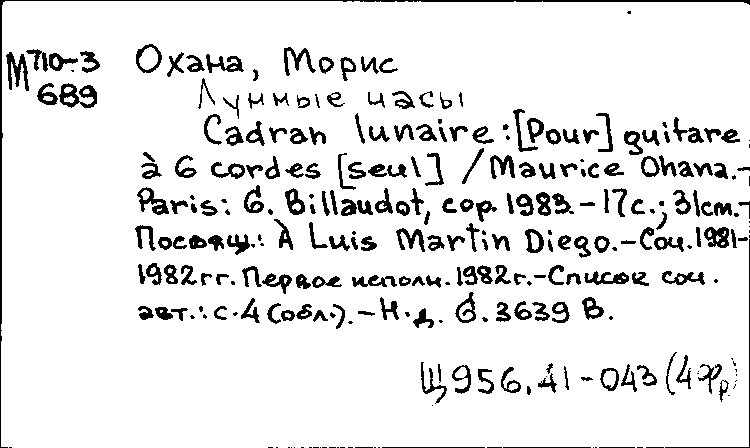 М710-3 Охана, Морис
689 Лунные часы
Cadran lunaire : [Pour] guitare
à 6 cordes [seul] / Maurice Ohana.-
Paris : G. Billaudot, cop. 1983.-17с.; 31см.-
Посвящ.: À Luis Martin Diego.-Соч.1981-
1982гг. Первое исполн. 1982г.-Список соч.
авт.: с.4 (обл.).-Н.д. G. 3639 B.
Щ956.41-043 (4Фр)